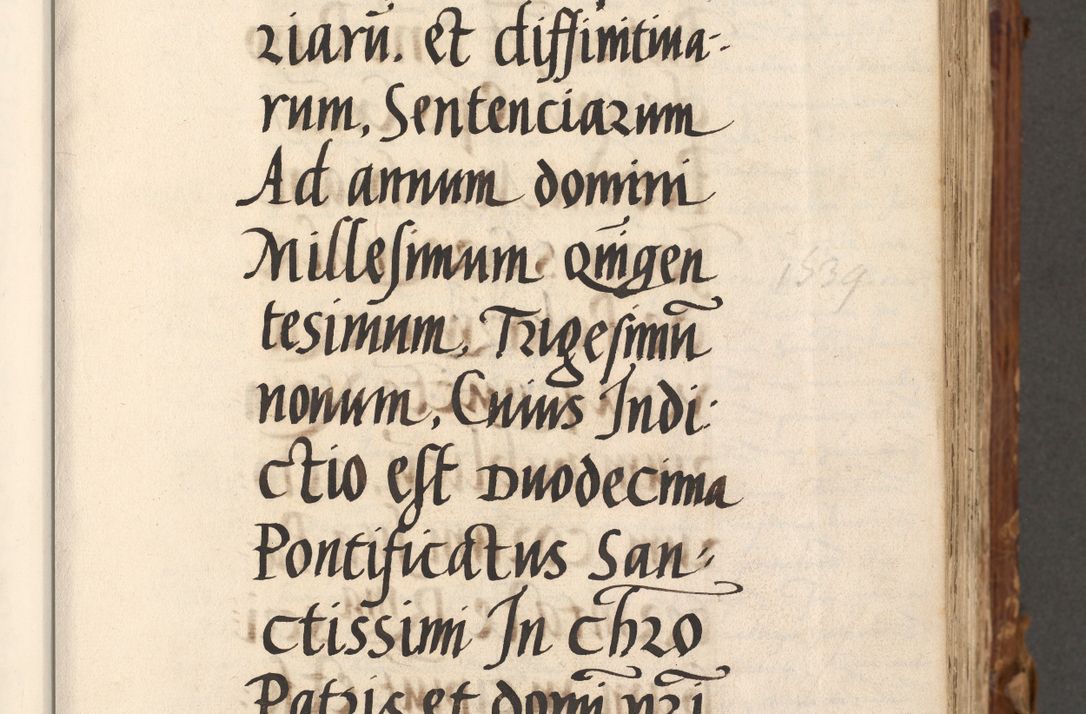 riarũ. et diffinitiua-
rum, Sentenciarum
Ad annum domini
Millesimum Qui̅gen
tesimum, Trigesimũ
1539
nonum, Cuius Indi:
ctio est Duodecima
Pontificatus San-
ctissimi In chr̅o
Patris et domi̅ nr̅i